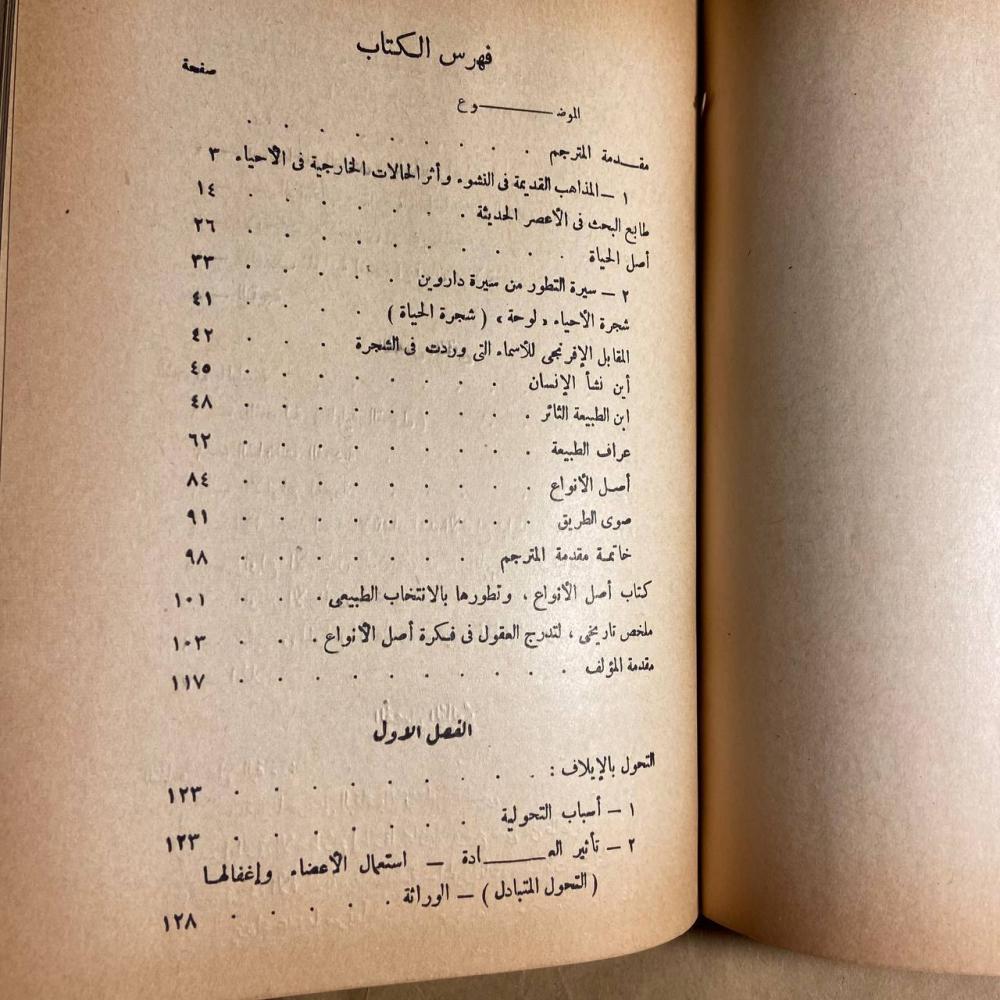 فهرس الكتاب
صفحة
الموضـــــــوع
مقدمة المترجم . . . . . . . .
١ — المذاهب القديمة فى النشوء وأثر الحالات الخارجية فى الأحياء ٣
طابع البحث فى الأعصر الحديثة . . . . . . . ١٤
أصل الحياة . . . . . . . . . ٢٦
٢ — سيرة التطور من سيرة داروين . . . . . ٣٣
شجرة الأحياء «لوحة» (شجرة الحياة) . . . . ٤١
المقابل الإفرنجى للأسماء التى وردت فى الشجرة . . . ٤٢
أين نشأ الإنسان . . . . . . . . ٤٥
ابن الطبيعة الثائر . . . . . . . . . ٤٨
عراف الطبيعة . . . . . . . . . ٦٢
أصل الأنواع . . . . . . . . . ٨٤
صوى الطريق . . . . . . . . . ٩١
خاتمة مقدمة المترجم . . . . . . . ٩٨
كتاب أصل الأنواع ، وتطورها بالانتخاب الطبيعى . . . . ١٠١
ملخص تاريخى ، لتدرج العقول فى فكرة أصل الأنواع . . . ١٠٣
مقدمة المؤلف . . . . . . . . . . ١١٧
الفصل الاول
التحول بالإيلاف : . . . . . . . . . ١٢٣
١ — أسباب التحولية . . . . . . . ١٢٣
٢ — تأثير العـــــــادة — استعمال الأعضاء وإغفالها
(التحول المتبادل) — الوراثة . . . . . ١٢٨